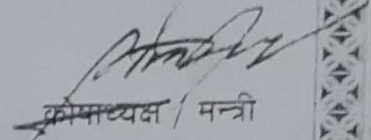 कोषाध्यक्ष / मन्त्री